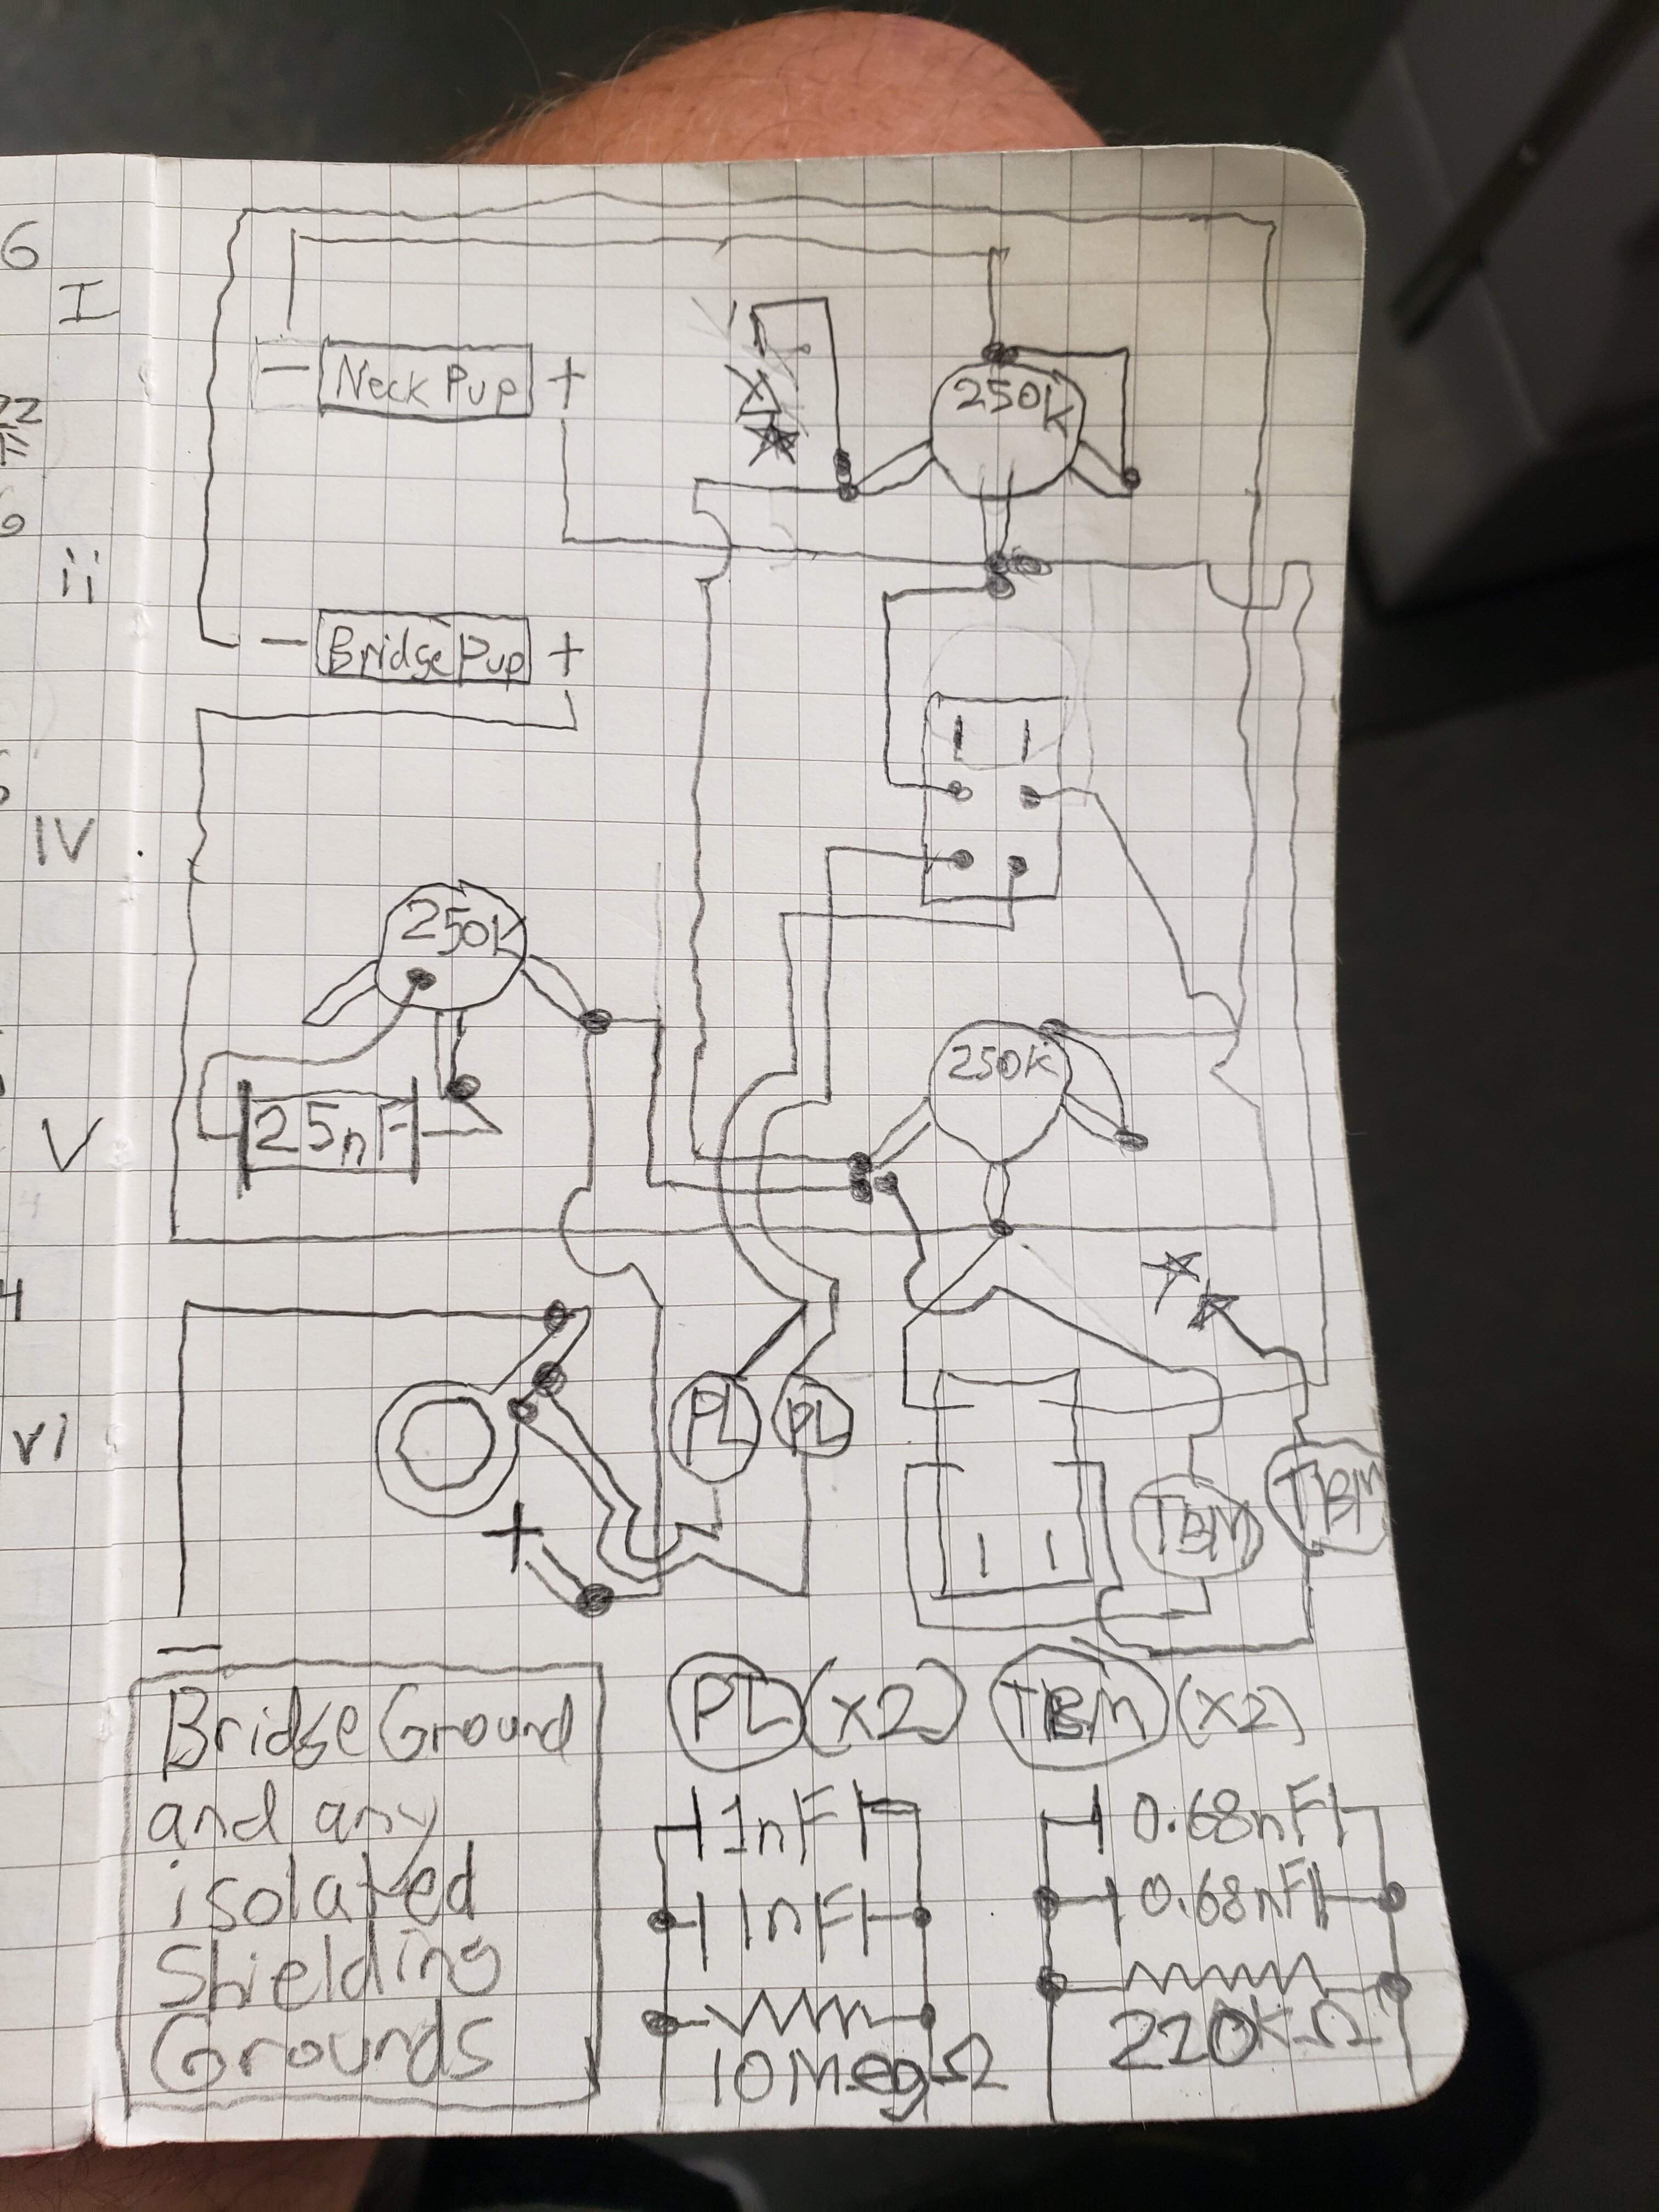 6
I
ii
IV
V
4
vi
− Neck Pup +
250K
− Bridge Pup +
250K
25nF
250K
PL
PL
TBM
TBM
+
−
Bridge Ground
and any
isolated
Shielding
Grounds
PL (x2)
1nF
1nF
10MegΩ
TBM (x2)
0.68nF
0.68nF
220KΩ